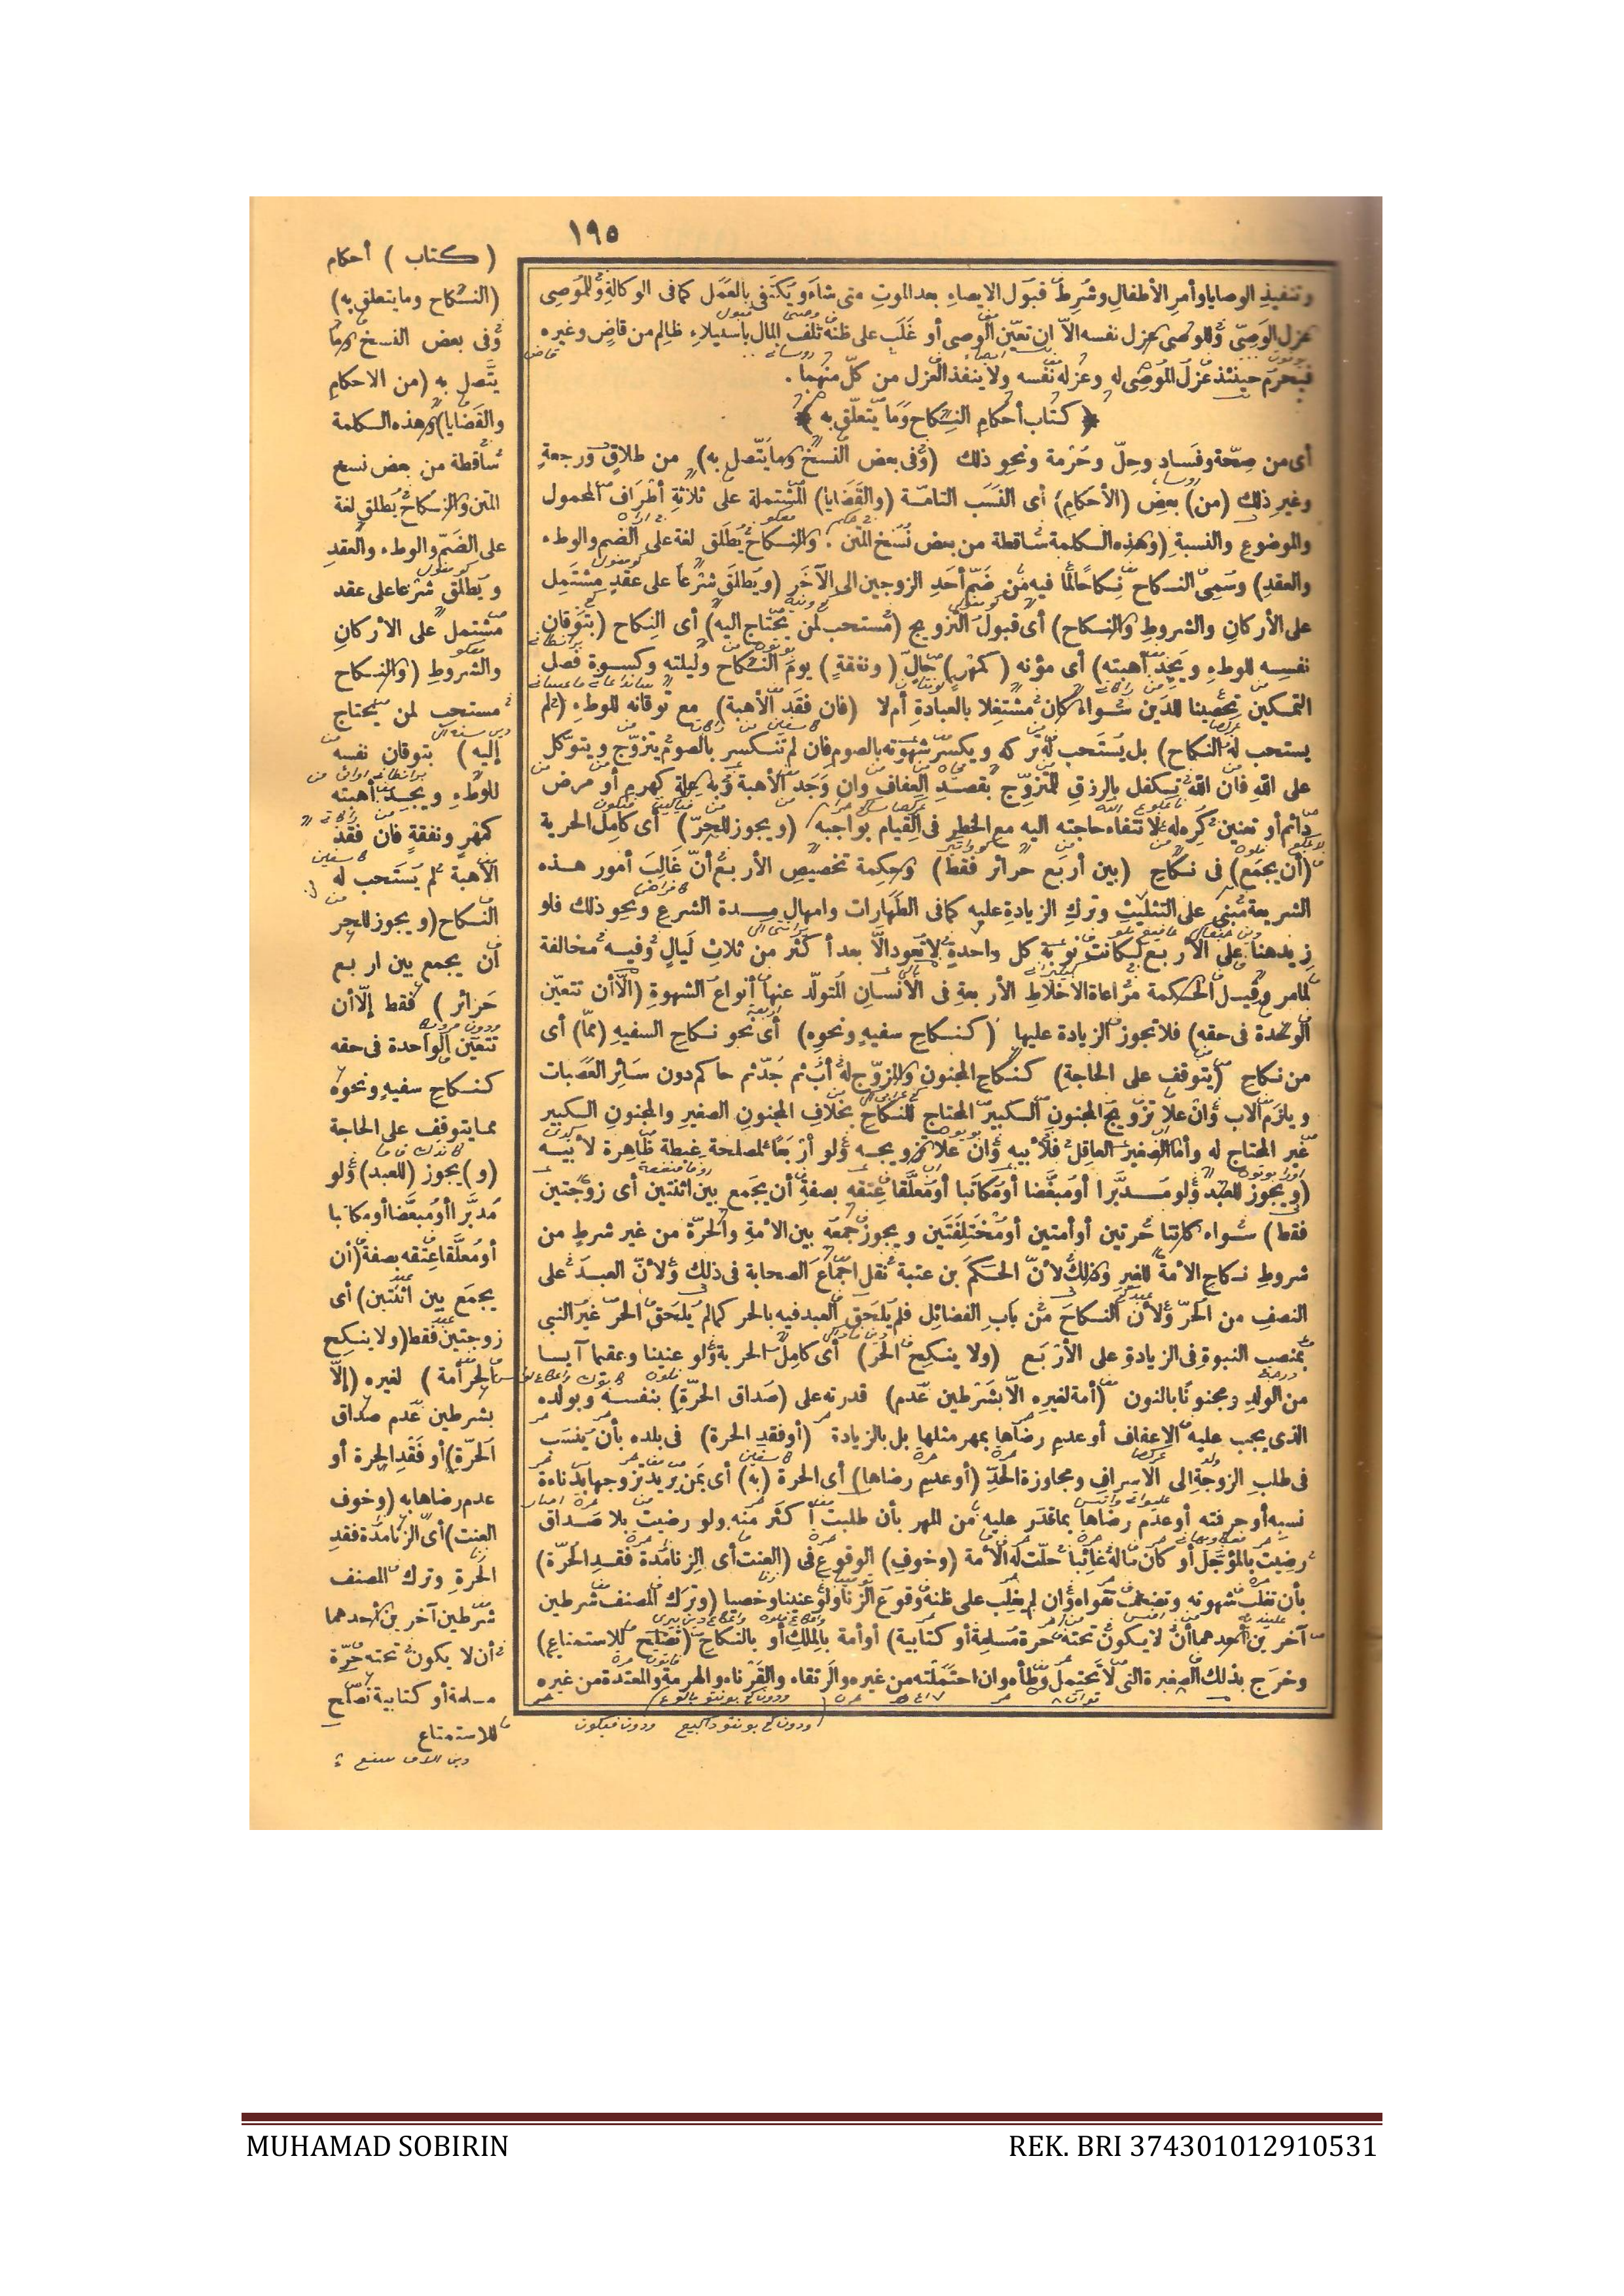 ١٩٥
وتنفيذ الوصايا وأمر الأطفال وشرط قبول الايصاء بعد الموت متى شاء ويكتفى بالعمل كما فى الوكالة وللموصى
عزل الوصى وللوصى عزل نفسه الا ان تعين الوصى أو غلب على ظنه تلف المال باستيلاء ظالم من قاض وغيره
فيحرم حينئذ عزل الموصى له وعزله نفسه ولا ينفذ العزل من كل منهما .
﴿ كتاب أحكام النكاح وما يتعلق به ﴾
أى من صحة وفساد وحل وحرمة ونحو ذلك (وفى بعض النسخ وما يتصل به) من طلاق ورجعة
وغير ذلك (من) بعض (الأحكام) أى النسب التامة (والقضايا) المشتملة على ثلاثة أطراف المحمول
والموضوع والنسبة (وهذه الكلمة ساقطة من بعض نسخ المتن . والنكاح يطلق لغة على الضم والوطء
والعقد) وسمى النكاح نكاحا لما فيه من ضم أحد الزوجين الى الآخر (ويطلق شرعا على عقد مشتمل
على الأركان والشروط والنكاح) أى قبول التزويج (مستحب لمن يحتاج اليه) أى النكاح (بتوقان
نفسه للوطء ويجد أهبته) أى مؤنه (كمهر) حال (ونفقة) يوم النكاح وليلته وكسوة فصل
التمكين تحصينا للدين سواء كان مشتغلا بالعبادة أم لا (فان فقد الأهبة) مع توقانه للوطء (لم
يستحب له النكاح) بل يستحب له تركه ويكسر شهوته بالصوم فان لم تنكسر بالصوم يتزوج ويتوكل
على الله فان الله تكفل بالرزق للمتزوج بقصد العفاف وان وجد الأهبة وبه علة كهرم أو مرض
دائم أو تعنين كره له لانتفاء حاجته اليه مع الخطر فى القيام بواجبه (ويجوز للحر) أى كامل الحرية
(أن يجمع) فى نكاح (بين أربع حرائر فقط) وحكمة تخصيص الأربع أن غالب أمور هذه
الشريعة مبنى على التثليث وترك الزيادة عليه كما فى الطهارات وامهال مدة الشرع ونحو ذلك فلو
زيد هنا على الأربع لكانت نوبة كل واحدة لا تعود الا بعد أكثر من ثلاث ليال وفيه مخالفة
لما مر وقيل الحكمة مراعاة الأخلاط الأربعة فى الانسان المتولد عنها أنواع الشهوة (الا أن تتعين
الواحدة فى حقه) فلا تجوز الزيادة عليها (كنكاح سفيه ونحوه) أى نحو نكاح السفيه (مما) أى
من نكاح (يتوقف على الحاجة) كنكاح المجنون والمزوج له أب ثم جد ثم حاكم دون سائر العصبات
ويلزم الاب وان علا تزويج المجنون الكبير المحتاج للنكاح بخلاف المجنون الصغير والمجنون الكبير
غير المحتاج له وأما الصغير العاقل فلأبيه وان علا تزويجه ولو أربعا لمصلحة غبطة ظاهرة لأبيه
(ويجوز للعبد ولو مدبرا أو مبعضا أو مكاتبا أو معلقا عتقه بصفة أن يجمع بين اثنتين أى زوجتين
فقط) سواء كانتا حرتين أو أمتين أو مختلفتين ويجوز جمعه بين الأمة والحرة من غير شرط من
شروط نكاح الأمة للغير وكذلك لأن الحكم بن عتبة نقل اجماع الصحابة فى ذلك ولأن العبد على
النصف من الحر ولأن النكاح من باب الفضائل فلم يلحق العبد فيه بالحر كما لم يلحق الحر غير النبى
بمنصب النبوة فى الزيادة على الأربع (ولا ينكح الحر) أى كامل الحرية ولو عنينا وعقيما آيسا
من الولد ومجنونا بالنون (أمة لغيره الا بشرطين عدم) قدرته على (صداق الحرة) بنفسه وبولده
الذى يجب عليه الاعفاف أو عدم رضاها بمهر مثلها بل بالزيادة (أو فقد الحرة) فى بلده بأن ينسب
فى طلب الزوجة الى الاسراف ومجاوزة الحد (أو عدم رضاها) أى الحرة (به) أى بمن يريد تزوجها بدناءة
نسبه أو حرفته أو عدم رضاها بما قدر عليه من المهر بأن طلبت أكثر منه ولو رضيت بلا صداق
رضيت بالمؤجل أو كان ماله غائبا حلت له الأمة (وخوف) الوقوع فى (العنت أى الزنا مدة فقد الحرة)
بأن تغلب شهوته وتضعف تقواه وان لم يغلب على ظنه وقوع الزنا ولو عنينا وخصيا (وترك المصنف شرطين
آخرين أحدهما أن لا يكون تحته حرة مسلمة أو كتابية) أو أمة بالملك أو بالنكاح (تصلح للاستمتاع)
وخرج بذلك الصغيرة التى لا تحتمل وطأه وان احتملته من غيره والرتقاء والقرناء والهرمة والمعتدة من غيره
(كتاب) أحكام
(النكاح وما يتعلق به)
وفى بعض النسخ وما
يتصل به (من الاحكام
والقضايا) وهذه الكلمة
ساقطة من بعض نسخ
المتن والنكاح يطلق لغة
على الضم والوطء والعقد
ويطلق شرعا على عقد
مشتمل على الأركان
والشروط (والنكاح
مستحب لمن يحتاج
إليه) بتوقان نفسه
للوطء ويجد أهبته
كمهر ونفقة فان فقد
الأهبة لم يستحب له
النكاح (ويجوز للحر
أن يجمع بين اربع
حرائر) فقط إلا أن
تتعين الواحدة فى حقه
كنكاح سفيه ونحوه
مما يتوقف على الحاجة
(و) يجوز (للعبد) ولو
مدبرا أو مبعضا أو مكاتبا
أو معلقا عتقه بصفة (أن
يجمع بين اثنتين) أى
زوجتين فقط (ولا ينكح
الحر أمة) لغيره (إلا
بشرطين عدم صداق
الحرة) أو فقد الحرة أو
عدم رضاها به (وخوف
العنت) أى الزنا مدة فقد
الحرة وترك المصنف
شرطين آخرين أحدهما
أن لا يكون تحته حرة
مسلمة أو كتابية تصلح
للاستمتاع
MUHAMAD SOBIRIN
REK. BRI 374301012910531